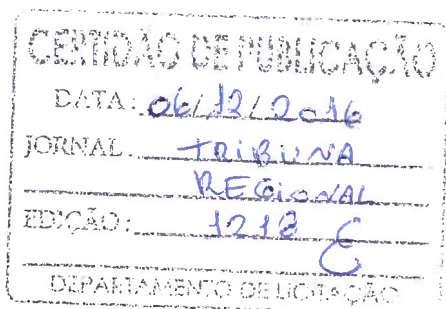 CERTIDÃO DE PUBLICAÇÃO
DATA: 06/12/2016
JORNAL: TRIBUNA
REGIONAL
EDIÇÃO: 1218
DEPARTAMENTO DE LICITAÇÃO